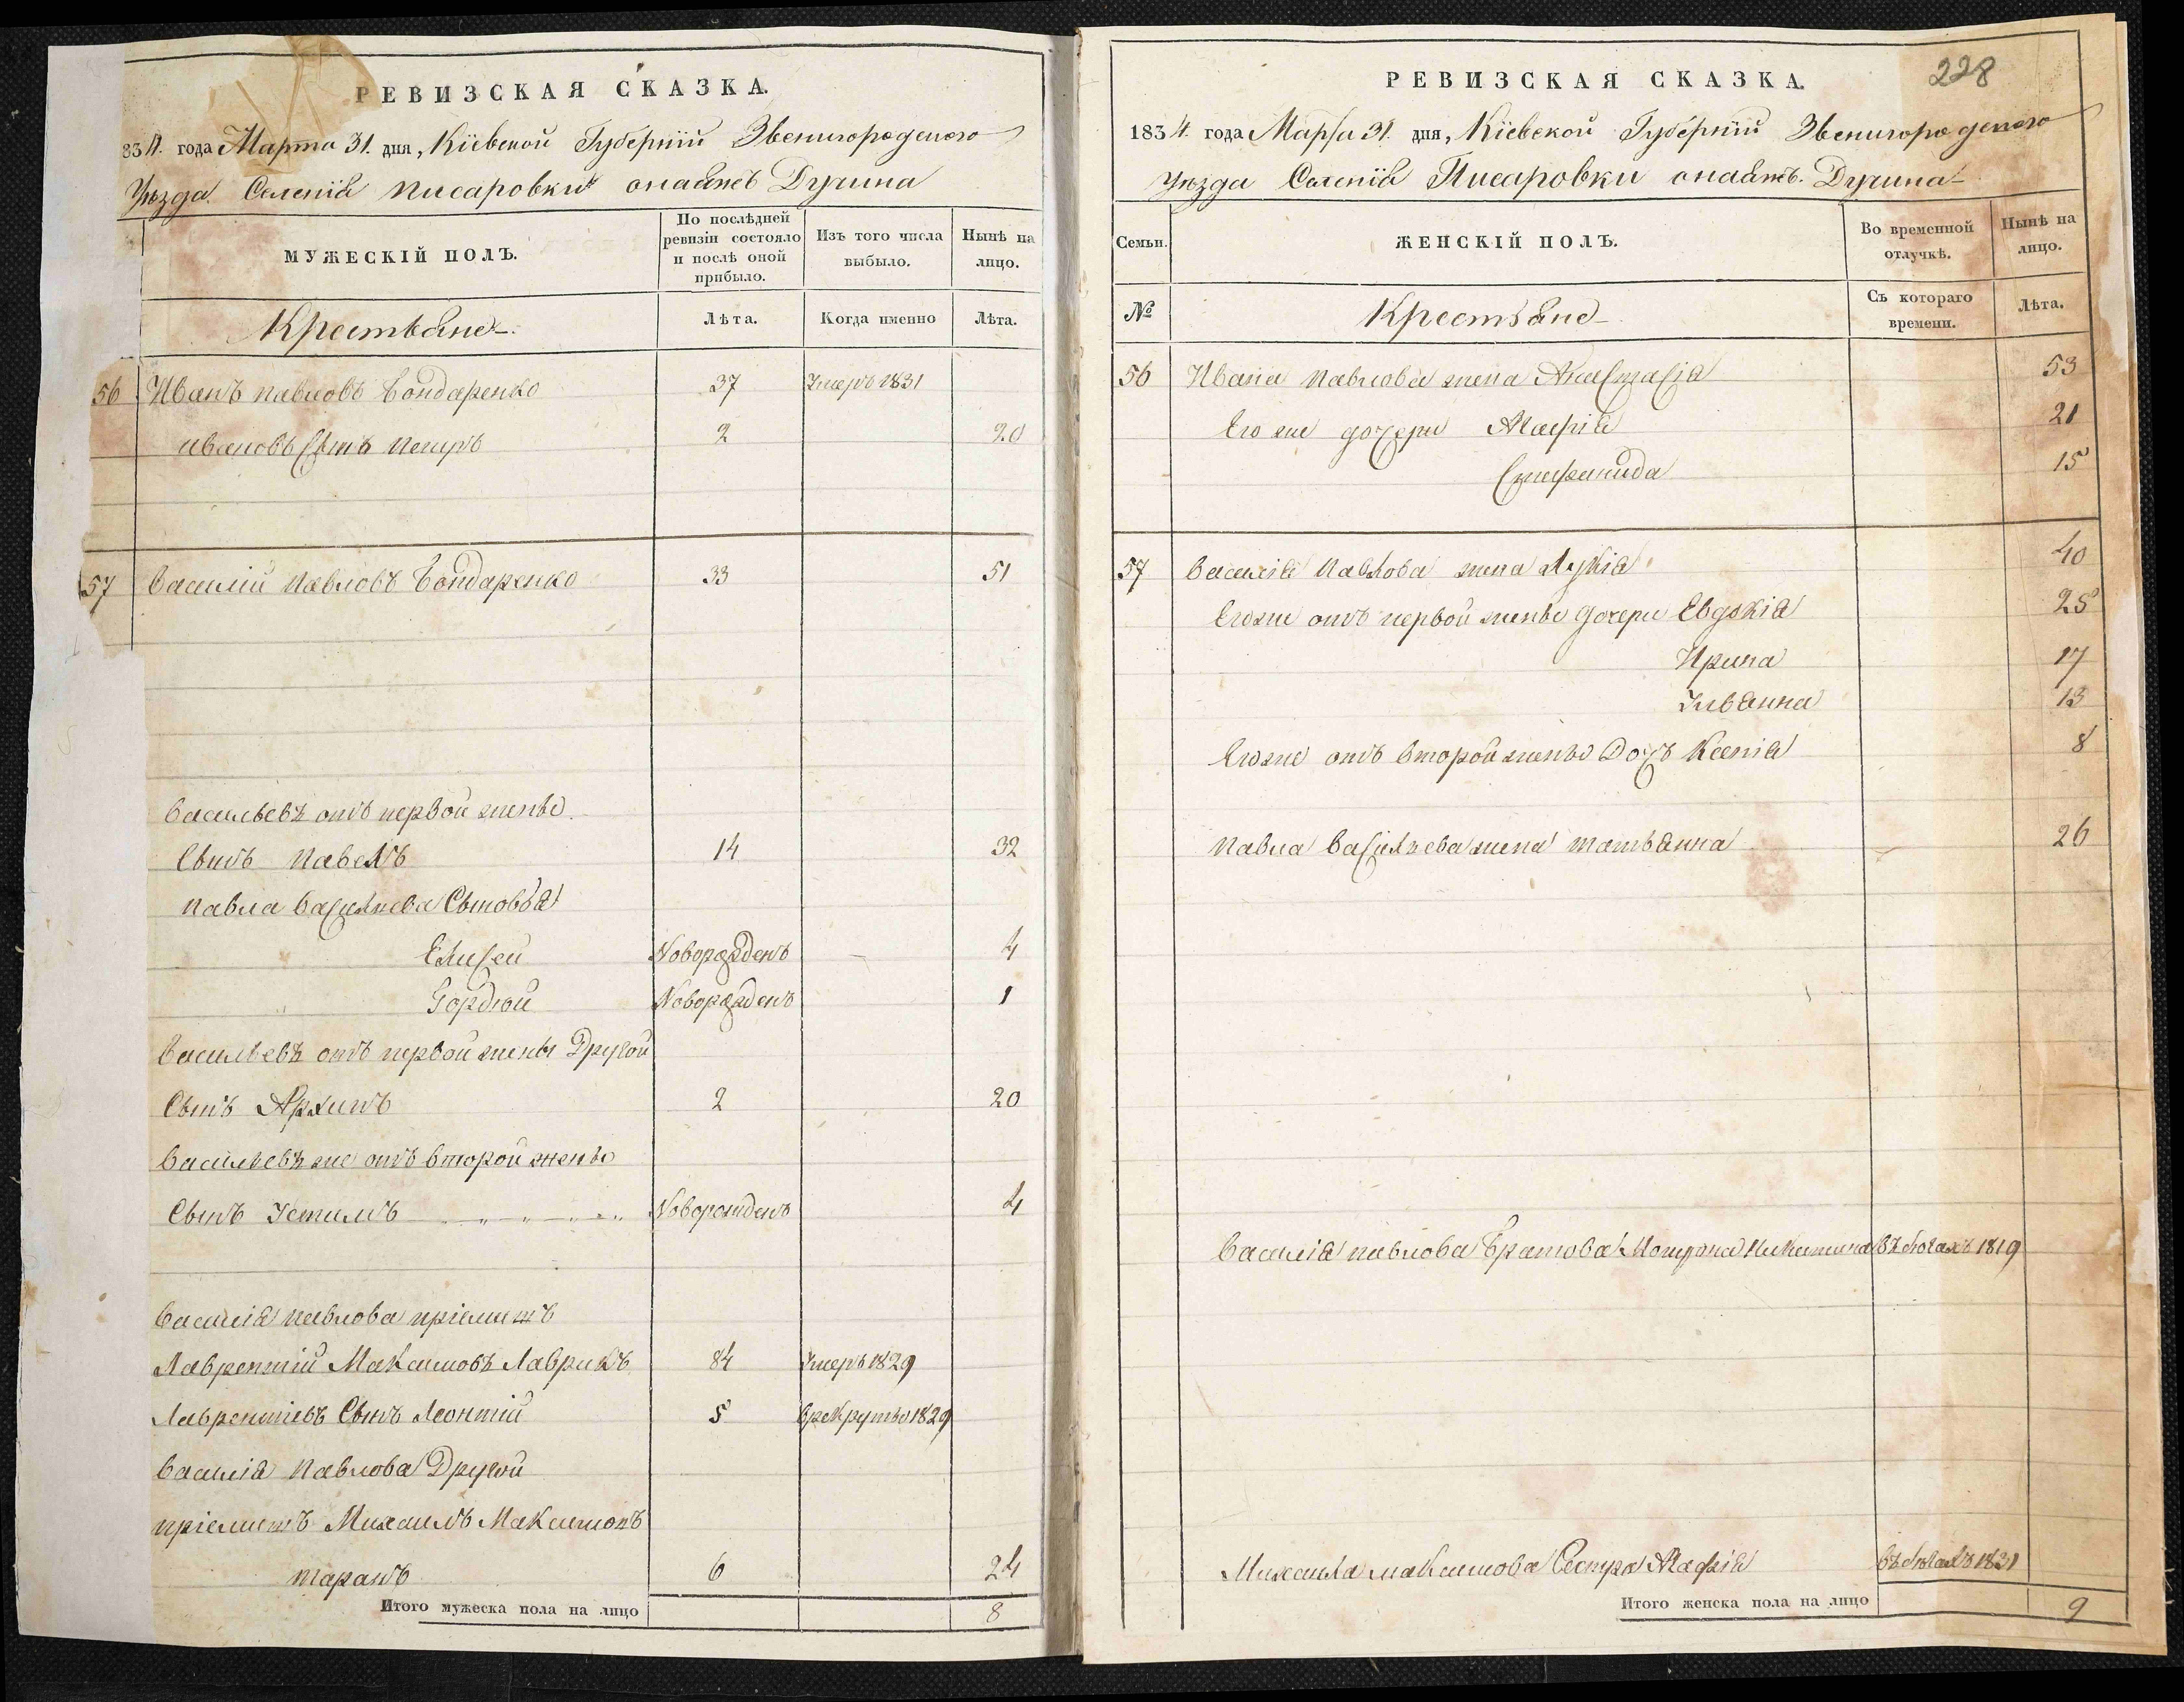 РЕВИЗСКАЯ СКАЗКА.
834. года Марта 31. дня, Кіевской Губерніи Звенигородского
Уѣзда Селенія Писаровки онаяжъ Дучина
МУЖЕСКІЙ ПОЛЪ.
По послѣдней ревизіи состояло и послѣ оной прибыло.
Изъ того числа выбыло.
Нынѣ на лицо.
Крестьяне
Лѣта.
Когда именно
Лѣта.
56 Иванъ Павловъ Бондаренко 37 Умеръ 1831
Ивановъ Сынъ Петръ 2 20
57 Василій Павловъ Бондаренко 33 51
Васильевъ отъ первой жены
Сынъ Павелъ 14 32
Павла Васильева Сыновья
Елисей Новорожденъ 4
Гордѣй Новорожденъ 1
Васильевъ отъ первой жены Другой
Сынъ Архипъ 2 20
Васильевъ же отъ второй жены
Сынъ Устимъ Новорожденъ 4
Василія Павлова пріемышъ
Лаврентій Максимовъ Лаврикъ 84 Умеръ 1829
Лаврентіевъ Сынъ Леонтій 5 Врекруты 1829
Василія Павлова Другой
пріемышъ Михаилъ Максимовъ
таранъ 6 24
Итого мужеска пола на лицо 8
228
РЕВИЗСКАЯ СКАЗКА.
1834. года Марта 31. дня, Кіевской Губерніи Звенигородского
Уѣзда Селенія Писаровки онаяжъ. Дучина
Семьи.
ЖЕНСКІЙ ПОЛЪ.
Во временной отлучкѣ.
Нынѣ на лицо.
№
Крестьяне
Съ котораго времени.
Лѣта.
56 Ивана Павлова жена Анастасія 53
Его же дочери Агафія 21
Стефанида 15
57 Василія Павлова жена Лукія 40
Его же отъ первой жены дочери Евдокія 25
Ирина 17
Ульянна 13
Его же отъ второй жены Дочь Ксенія 8
Павла Васильева жена татьянна 26
Василія Павлова Братова Мотрона Никитина Въ бегахъ 1819
Михаила Максимова Сестра Агафія въ бегахъ 1831
Итого женска пола на лицо 9